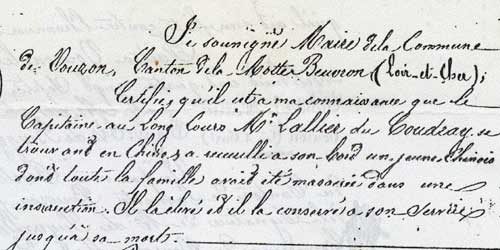 Je soussigné Maire de la Commune
de Vouzon, Canton de la Motte Beuvron (Loir-et-Cher),
Certifie, qu'il est à ma connaissance que le
Capitaine au Long Cours Mr Lallier du Coudray, se
trouvand en Chine, a recueilli a son bord un jeune Chinois
dond toute la famille avait été massacrée dans une
insurrection. Il l'a élevé et il l'a conservé a son service
jusqu'à sa mort.